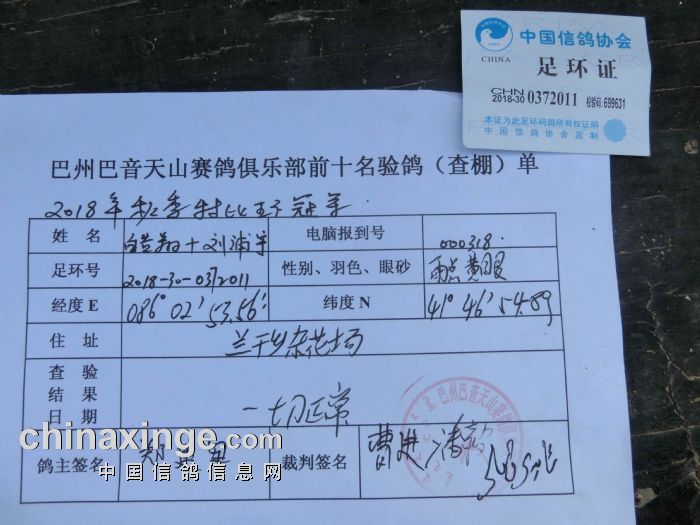 中国信鸽协会
CHINA
足环证
CHN
2018-30 0372011 校验码:699631
本证为此足环码鸽所有权证明
中国信鸽协会监制
巴州巴音天山赛鸽俱乐部前十名验鸽（查棚）单
2018年秋季特比环冠军
姓 名 翔+刘浦宇 电脑报到号 000318
足环号 2018-30-0372011 性别、羽色、眼砂 雨点 黄眼
经度E 086° 02′ 53.56″ 纬度N 41° 46′ 54.89
住 址 兰干乡杂花场
查验结果日期 一切正常
巴州巴音天山赛鸽俱
鸽主签名 郑 裁判签名 曹进 潘
chinaxinge.com
中国信鸽信息网